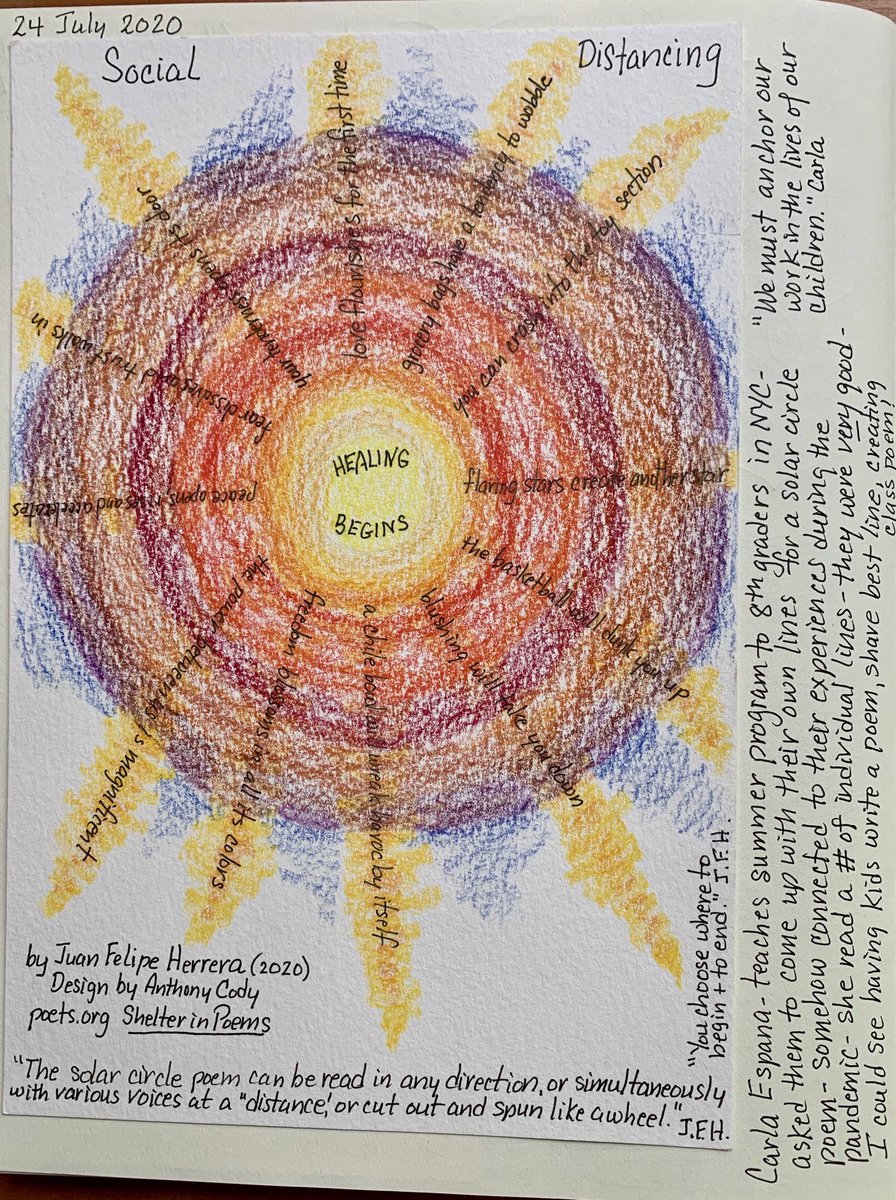 24 July 2020
Social Distancing
HEALING
BEGINS
love flourishes for the first time
grocery bags have a tendency to wobble
you can crash into the toy section
flaring stars create another star
the basketball will dunk you up
blushing will take you down
a chile bowl can wreak havoc by itself
freedom blossoms in all its colors
the power between us is magnificent
peace opens and accelerates
fear dissolves and trust walks in
your opens its door
by Juan Felipe Herrera (2020)
Design by Anthony Cody
poets.org Shelter in Poems
"You choose where to
begin + to end." J.F.H.
"The solar circle poem can be read in any direction, or simultaneously
with various voices at a "distance,' or cut out and spun like a wheel."
J.F.H.
Carla Espana - teaches summer program to 8th graders in NYC -
asked them to come up with their own lines for a solar circle
poem - somehow connected to their experiences during the
pandemic - she read a # of individual lines - they were very good -
I could see having kids write a poem, share best line, creating
class poem!
"We must anchor our
work in the lives of our
children." Carla